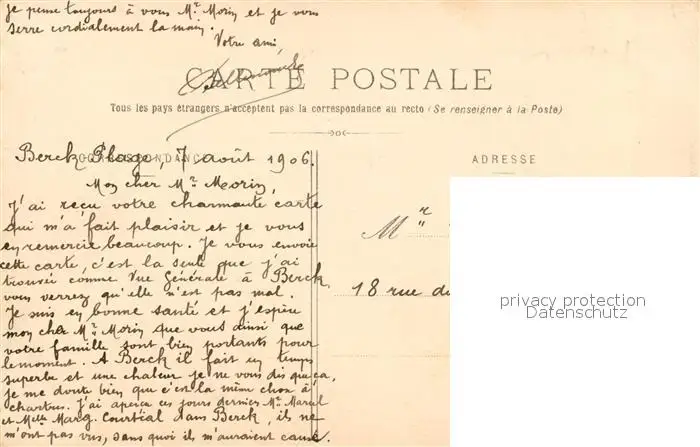 je pense toujours à vous Mr Morin et je vous
serre cordialement la main.
Votre ami,
CARTE POSTALE
Tous les pays étrangers n'acceptent pas la correspondance au recto (Se renseigner à la Poste)
CORRESPONDANCE
ADRESSE
Berck Plage, 7 août 1906.
Mon cher Mr Morin,
J'ai reçu votre charmante carte
qui m'a fait plaisir et je vous
en remercie beaucoup. Je vous envoie
cette carte, c'est la seule que j'ai
trouvée comme Vue Générale à Berck,
vous verrez qu'elle n'est pas mal.
Je suis en bonne santé et j'espère
mon cher Mr Morin que vous ainsi que
votre famille sont bien portants pour
le moment. A Berck il fait un temps
superbe et une chaleur je ne vous dis que ça,
je me doute bien que c'est la même chose à
Chartres. J'ai aperçu ces jours derniers Mr Marcel
et Melle Marg. Courtial dans Berck, ils ne
m'ont pas vus, sans quoi ils m'auraient causé.
Mr
18 rue du
privacy protection
Datenschutz